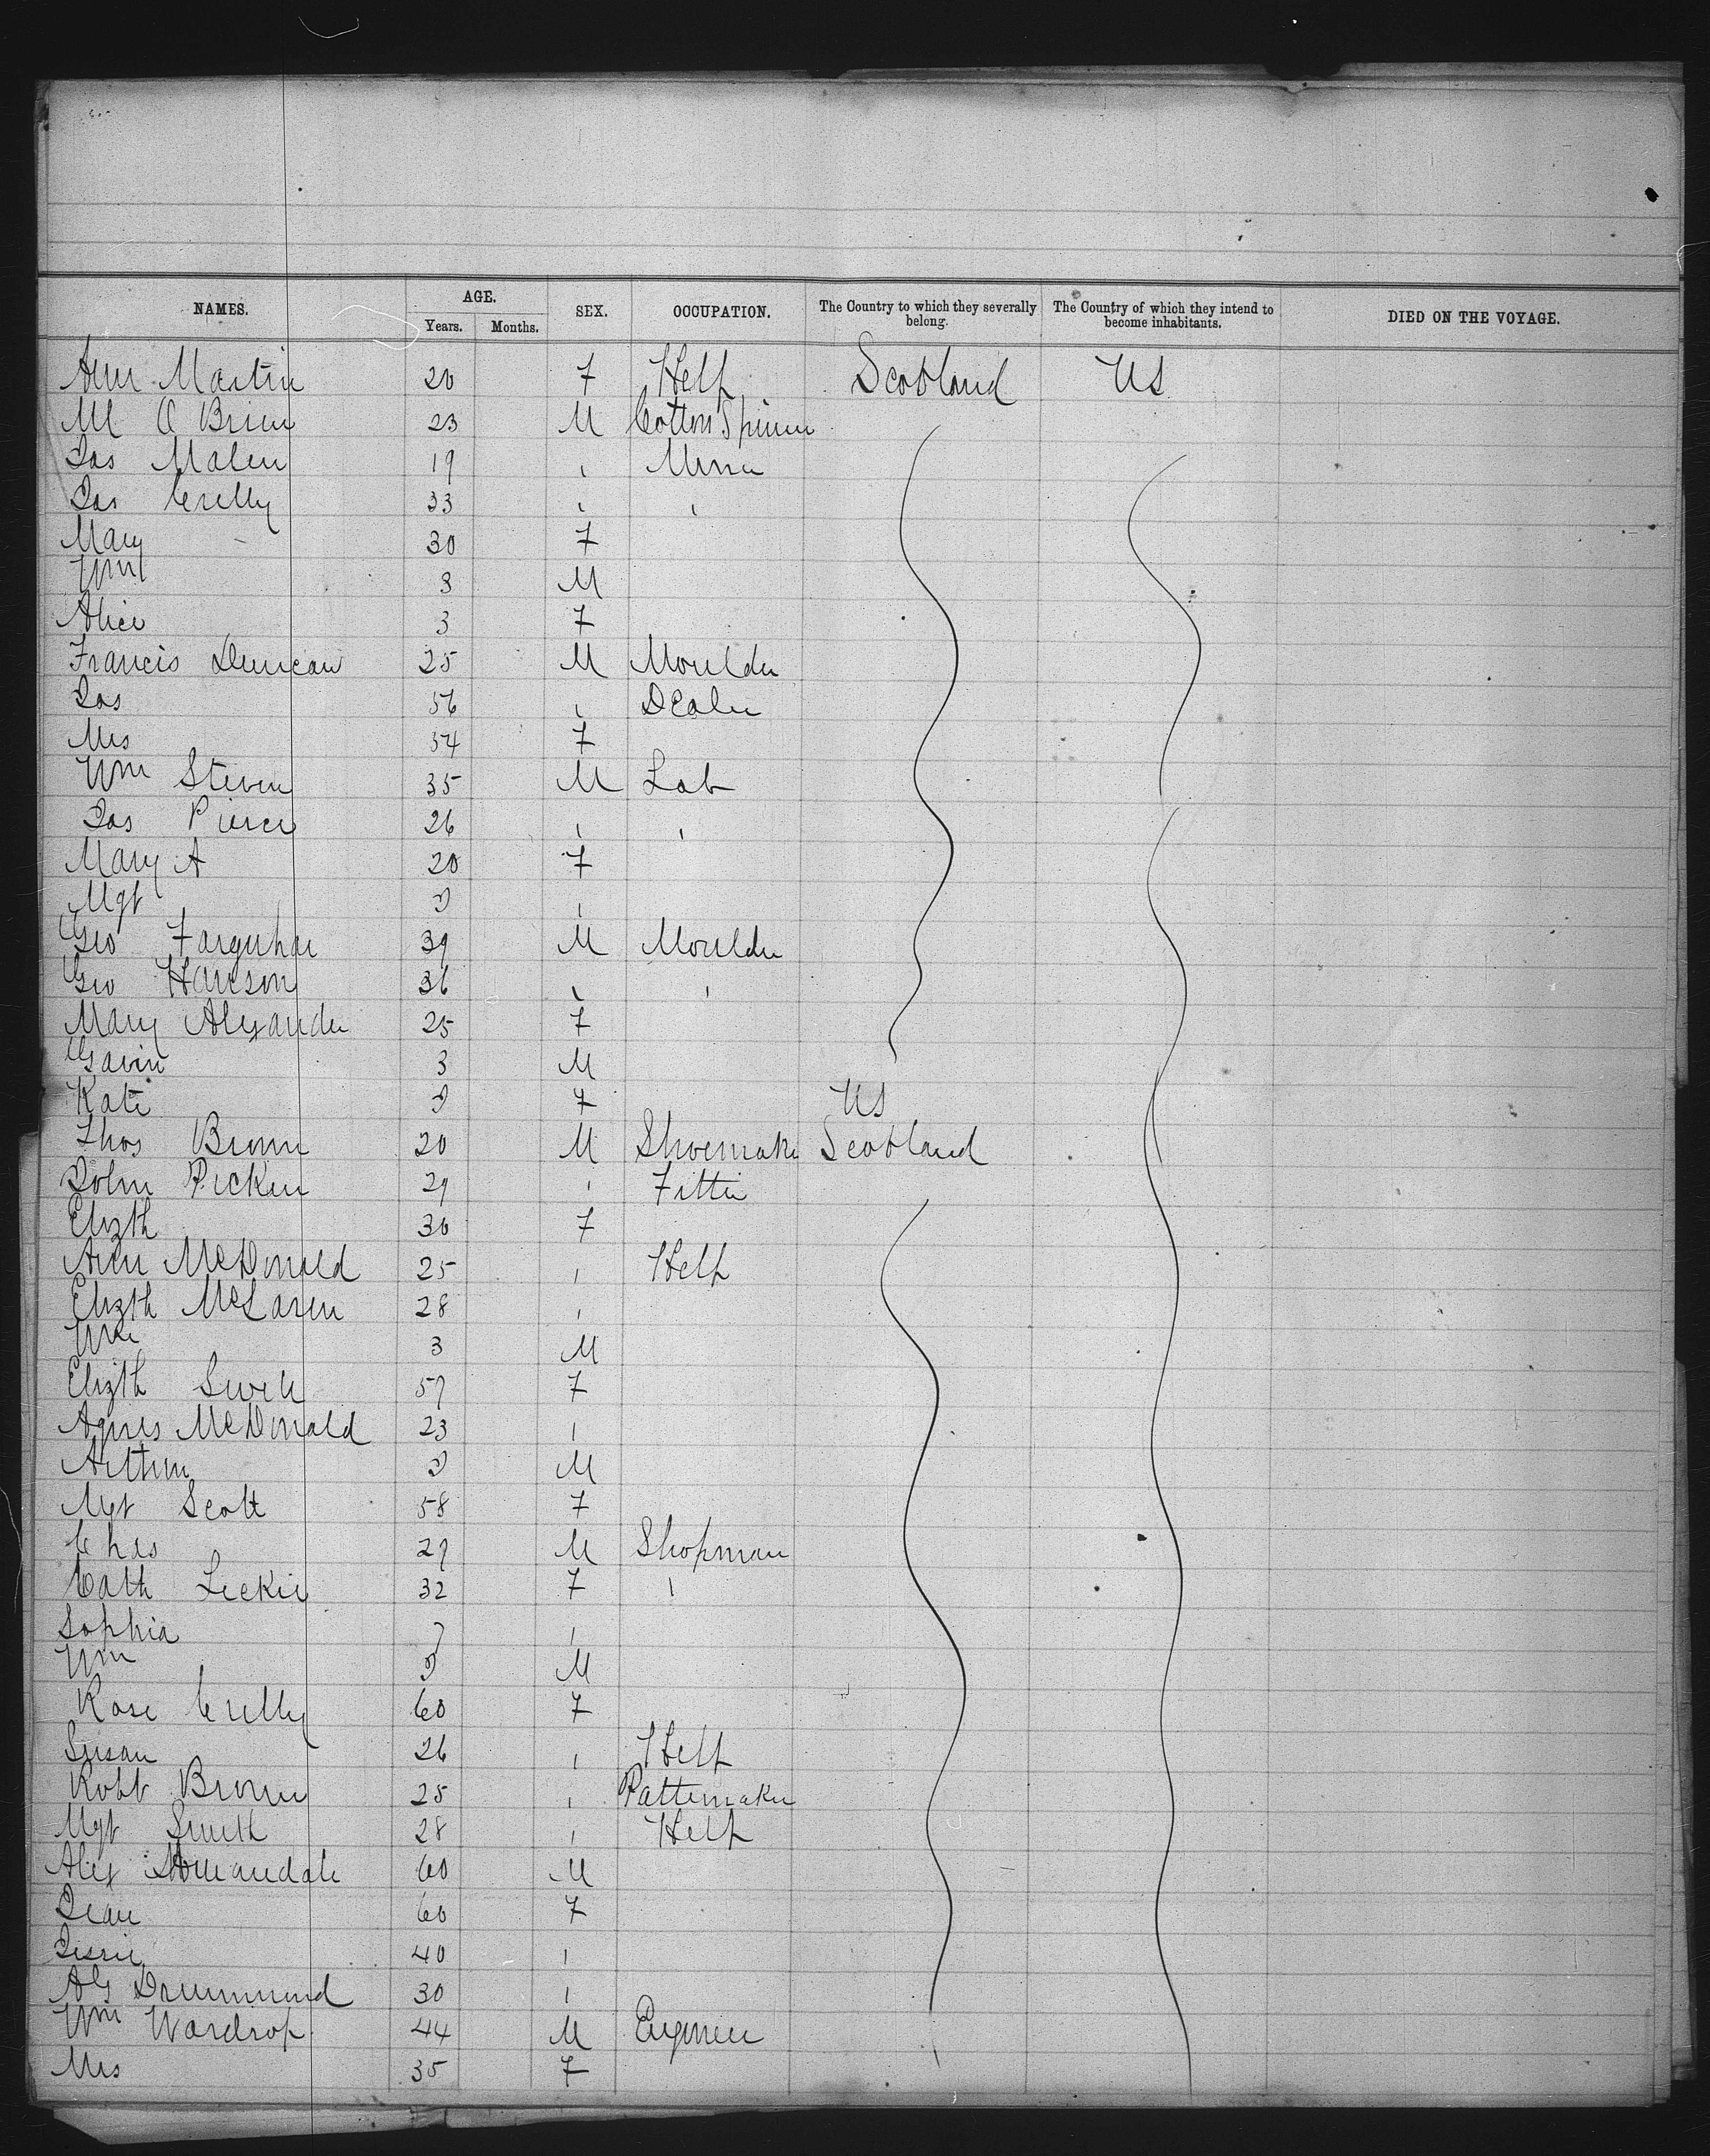 NAMES. AGE. SEX. OCCUPATION. The Country to which they severally belong. The Country of which they intend to become inhabitants. DIED ON THE VOYAGE.
Years. Months.
Ann Martin 20 F Help Scotland US
Ml O Brien 23 M Cotton Spinner
Jas Malen 19 " Miner
Jas Crelly 33 " "
Mary 30 F
Wm 3 M
Alice 3 F
Francis Duncan 25 M Moulder
Jas 56 " Dealer
Mrs 54 F
Wm Steven 35 M Lab
Jas Pierce 26 " "
Mary A 20 F
Mgt "
Geo Farquhar 39 M Moulder
Geo Harrison 36 " "
Mary Alexander 25 F
Gavin 3 M
Kate F US
Thos Brown 20 M Shoemaker Scotland
John Picken 29 " Fitter
Elizth 30 F
Ann McDonald 25 " Help
Elizth McLaren 28 "
Wm 3 M
Elizth 57 F
Agnes McDonald 23 "
Arthur M
Mgt Scott 58 F
Chas 27 M Shopman
Cath Leckie 32 F "
Sophia 7 "
Wm M
Rose Crelly 60 F
Susan 26 " Help
Robt Brown 25 " Patternmaker
Mgt Smith 28 " Help
Alex 60 M
Jean 60 F
Jessie 40 "
AG Drummond 30 "
Wm Wardrop 44 M Engineer
Mrs 35 F